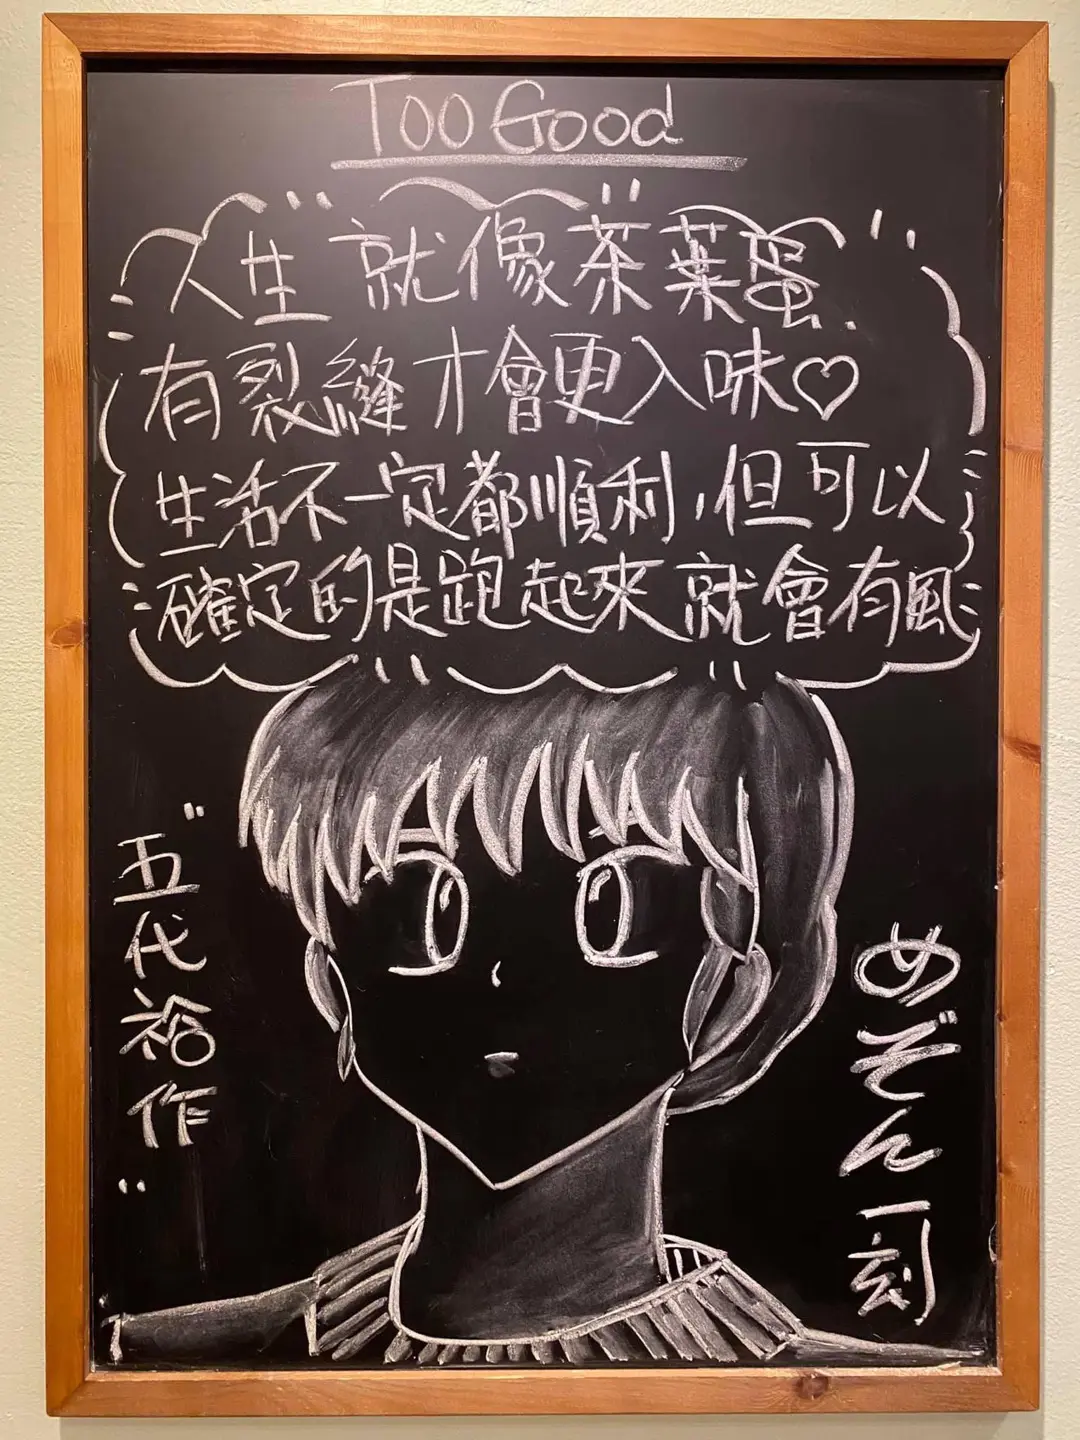 Too Good
人生就像茶葉蛋
有裂縫才會更入味♡
生活不一定都順利,但可以
確定的是跑起來就會有風
"五代裕作"
めぞん一刻